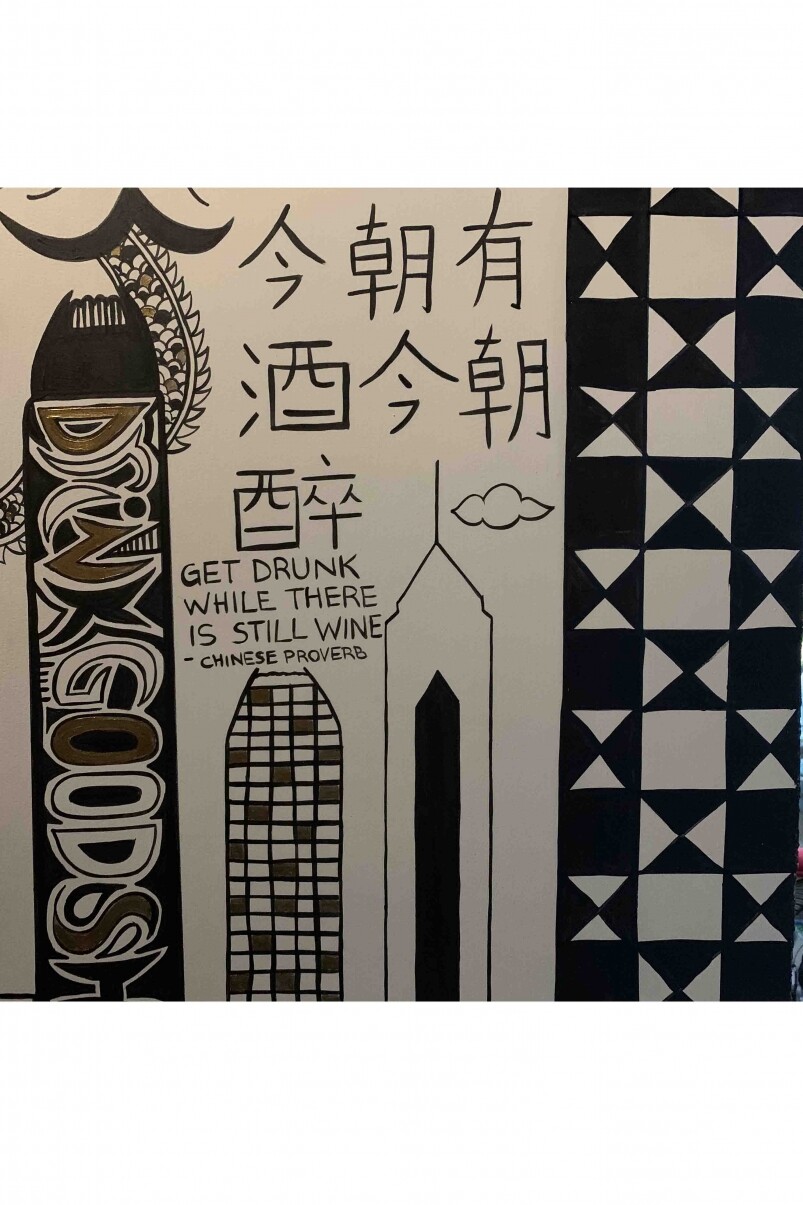 今朝有
酒今朝
醉
GET DRUNK
WHILE THERE
IS STILL WINE
- CHINESE PROVERB
DRINK GOODS